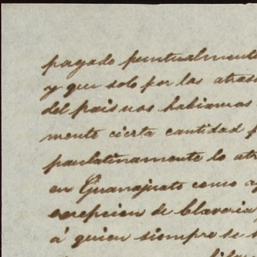 pagado puntualmente
y que solo por las atras
del pais nos habiamos
mente cierta cantidad p
paulatinamente lo atr
en Guanajuato como a
escepcion de Claveria
á quien siempre se